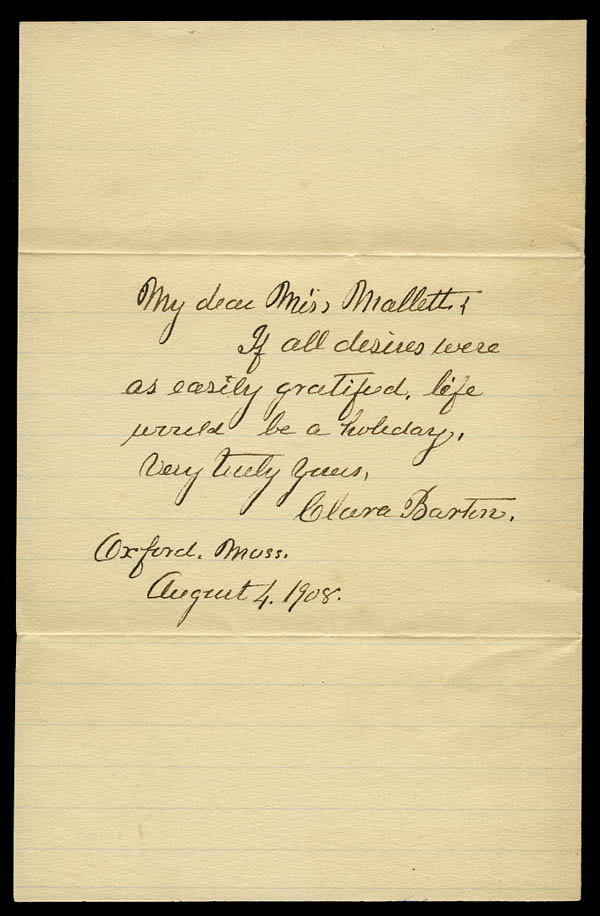 My dear Miss Mallett:
If all desires were
as easily gratified, life
would be a holiday.
Very truly yours,
Clara Barton.
Oxford. Mass.
August 4. 1908.